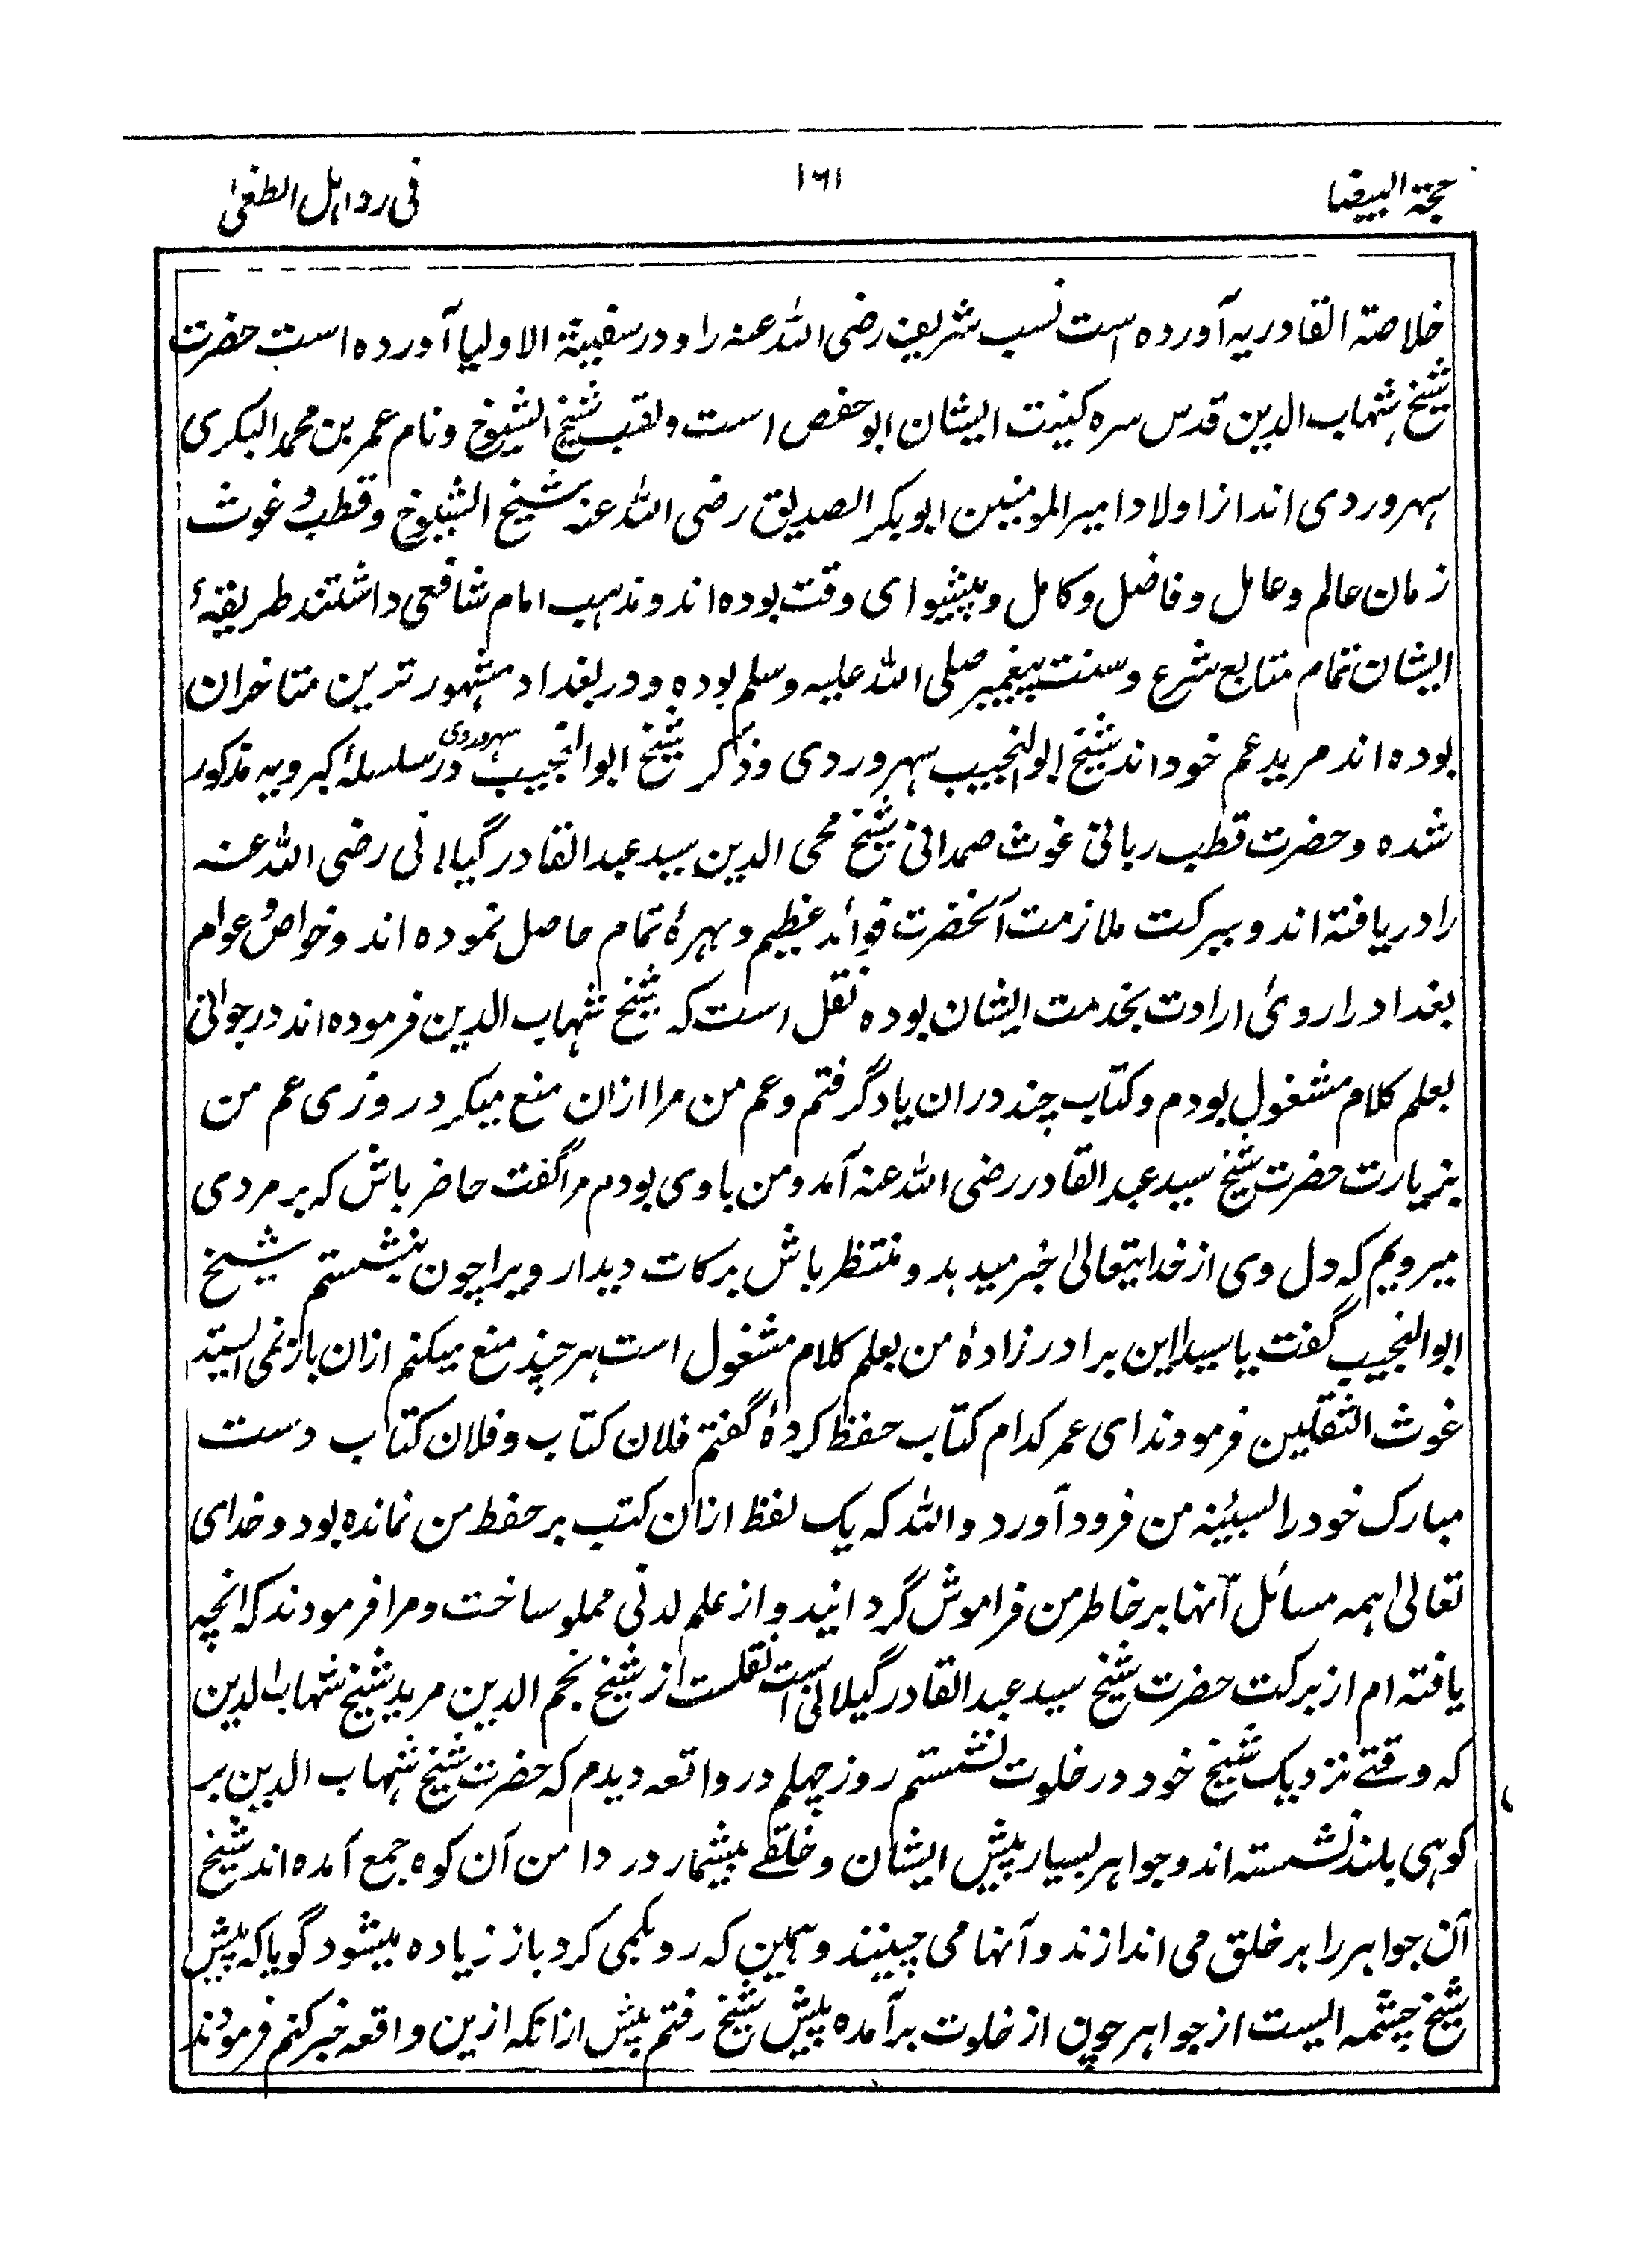 حجۃ البیضا
۱۶۱
فی رد اہل الطغیٰ
خلاصۃ القادریہ آوردہ است نسب شریف رضی اللہ عنہ را و در سفینۃ الاولیا آوردہ است حضرت
شیخ شہاب الدین قدس سرہ کنیت ایشان ابو حفص است و لقب شیخ الشیوخ و نام عمر بن محمد البکری
سہروردی اند از اولاد امیر المومنین ابو بکر الصدیق رضی اللہ عنہ شیخ الشیوخ و قطب و غوث
زمان عالم و عامل و فاضل و کامل و پیشوای وقت بودہ اند و مذہب امام شافعی داشتند طریقۂ
ایشان تمام متابع شرع و سنت پیغمبر صلی اللہ علیہ وسلم بودہ و در بغداد مشہور ترین متاخران
بودہ اند مرید عم خود اند شیخ ابو النجیب سہروردی و ذکر شیخ ابو النجیب سہروردی در سلسلۂ کبرویہ مذکور
شدہ و حضرت قطب ربانی غوث صمدانی شیخ محی الدین سید عبد القادر گیلانی رضی اللہ عنہ
را دریافتہ اند و ببرکت ملازمت آنحضرت فوائد عظیم و بہرۂ تمام حاصل نمودہ اند و خواص و عوام
بغداد را روئ ارادت بخدمت ایشان بودہ نقل است کہ شیخ شہاب الدین فرمودہ اند در جوانی
بعلم کلام مشغول بودم و کتاب چند دران یاد گرفتم و عم من مرا ازان منع میکرد روزی عم من
بزیارت حضرت شیخ سید عبد القادر رضی اللہ عنہ آمد و من با وی بودم مرا گفت حاضر باش کہ بر مردی
میرویم کہ دل وی از خدایتعالیٰ خبر میدہد و منتظر باش برکات دیدار ویرا چون بنشستم شیخ
ابو النجیب گفت یا سیدا این برادر زادۂ من بعلم کلام مشغول است ہر چند منع میکنم ازان باز نمی ایستد
غوث الثقلین فرمودند ای عمر کدام کتاب حفظ کردۂ گفتم فلان کتاب و فلان کتاب دست
مبارک خود را بسینۂ من فرود آورد واللہ کہ یک لفظ ازان کتب بر حفظ من نماندہ بود و خدای
تعالیٰ ہمہ مسائل آنہا بر خاطر من فراموش گردانید و از علم لدنی مملو ساخت و مرا فرمودند کہ انچہ
یافتہ ام از برکت حضرت شیخ سید عبد القادر گیلانی است نقلست از شیخ نجم الدین مرید شیخ شہاب الدین
کہ وقتے نزدیک شیخ خود در خلوت نشستم روز چہلم در واقعہ دیدم کہ حضرت شیخ شہاب الدین بر
کوہی بلند نشستہ اند و جواہر بسیار پیش ایشان و خلقے بیشمار در دامن آن کوہ جمع آمدہ اند شیخ
آن جواہر را بر خلق می اندازند و آنہا می چینند و ہمین کہ رو بکمی کرد باز زیادہ میشود گویا کہ پیش
شیخ چشمہ ایست از جواہر چون از خلوت برآمدہ پیش شیخ رفتم پیش ازانکہ ازین واقعہ خبر کنم فرمودند